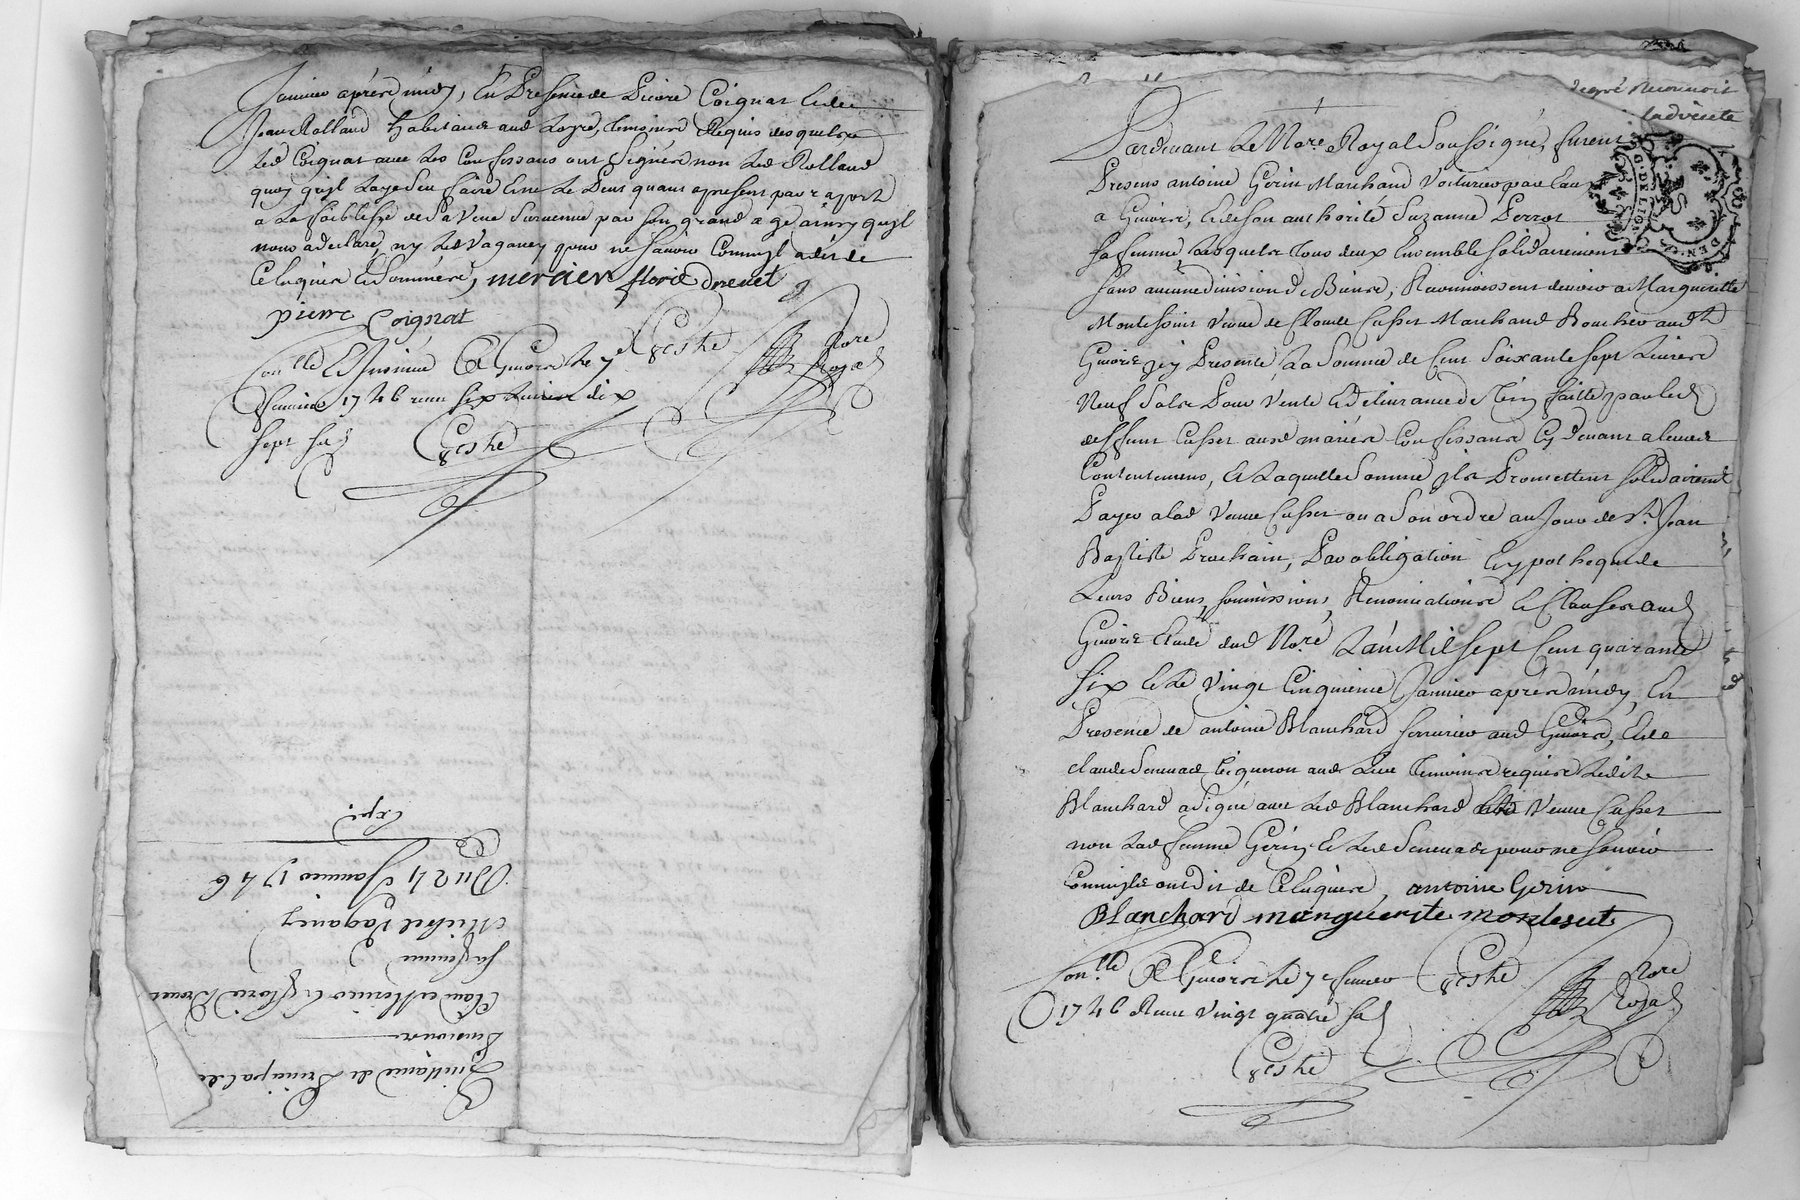 Janvier apres midy, En Presence de Pierre Coignat et de
Jean Rolland habitans aud Loyre, temoins Requis desquels
led Coignat avec les Confessans ont signés non led Rolland
quoy qu'il laye sceu faire Et ne le peut quant apresent par raport
a la foiblesse de sa veue survenue par son grand age ainsy qu'il
nous a declaré, ny led Vaganey pour ne sçavoir comm'il a dit de
ce Enquis et sommés, mercier florie drevet
pierre Coignat
Conllé Et Insinué A Givors le 7e
fevrier 1746 reçu six Livres dix
sept sols
Nore
Royal
Expé
Du 24 Janvier 1746
Michel Vaganey
sa femme
Claude Mercier et florie Drevet
Pension
Quittance de Principal de
degré Reconnoit
Pardevant Le Nore Royal Soussigné, furent
Presens antoine Gerin Marchand Voiturier par Eau
a Givors, et de son authorité Suzanne Perrot
sa femme, Lesquels tous deux Ensemble solidairement
sans aucune division de Biens, Reconnoissent devoir a Marguerite
Montessuit Veuve de Claude Cusset Marchand Boucher aud t
Givors jcy Presente, La Somme de Cent Soixante sept Livres
Neuf Sols Pour Vente et delivrance de faitte par led
deffunt Cusset ausd mariés Confessans Cy devant a leur
Contentement, et Laquelle Somme jls Promettent solidairement
Payer a lad Veuve Cusset ou a Son ordre au Jour de St Jean
Baptiste Prochain, Par obligation Et ypotheque de
Leurs Biens, soumissions, Renonciations et Clauses aud
Givors Etude dud Nore Lan Mil sept Cent quarante
six et Le Vingt Cinquieme Janvier apres midy, En
Presence de antoine Blanchard serrurier aud Givors, Et de
claude Vigneron aud Lieu temoins requis Ledit
Blanchard a signé avec Led Blanchard Veuve Cusset
non Lad femme Gerin, et Led pour ne sçavoir
Comm'jls ont dit de ce Enquis, antoine Gerin
Blanchard marguerite montesuit
Conllé A Givors Le 7e fevrier
1746 Reçu vingt quatre sols
Nore
Royal